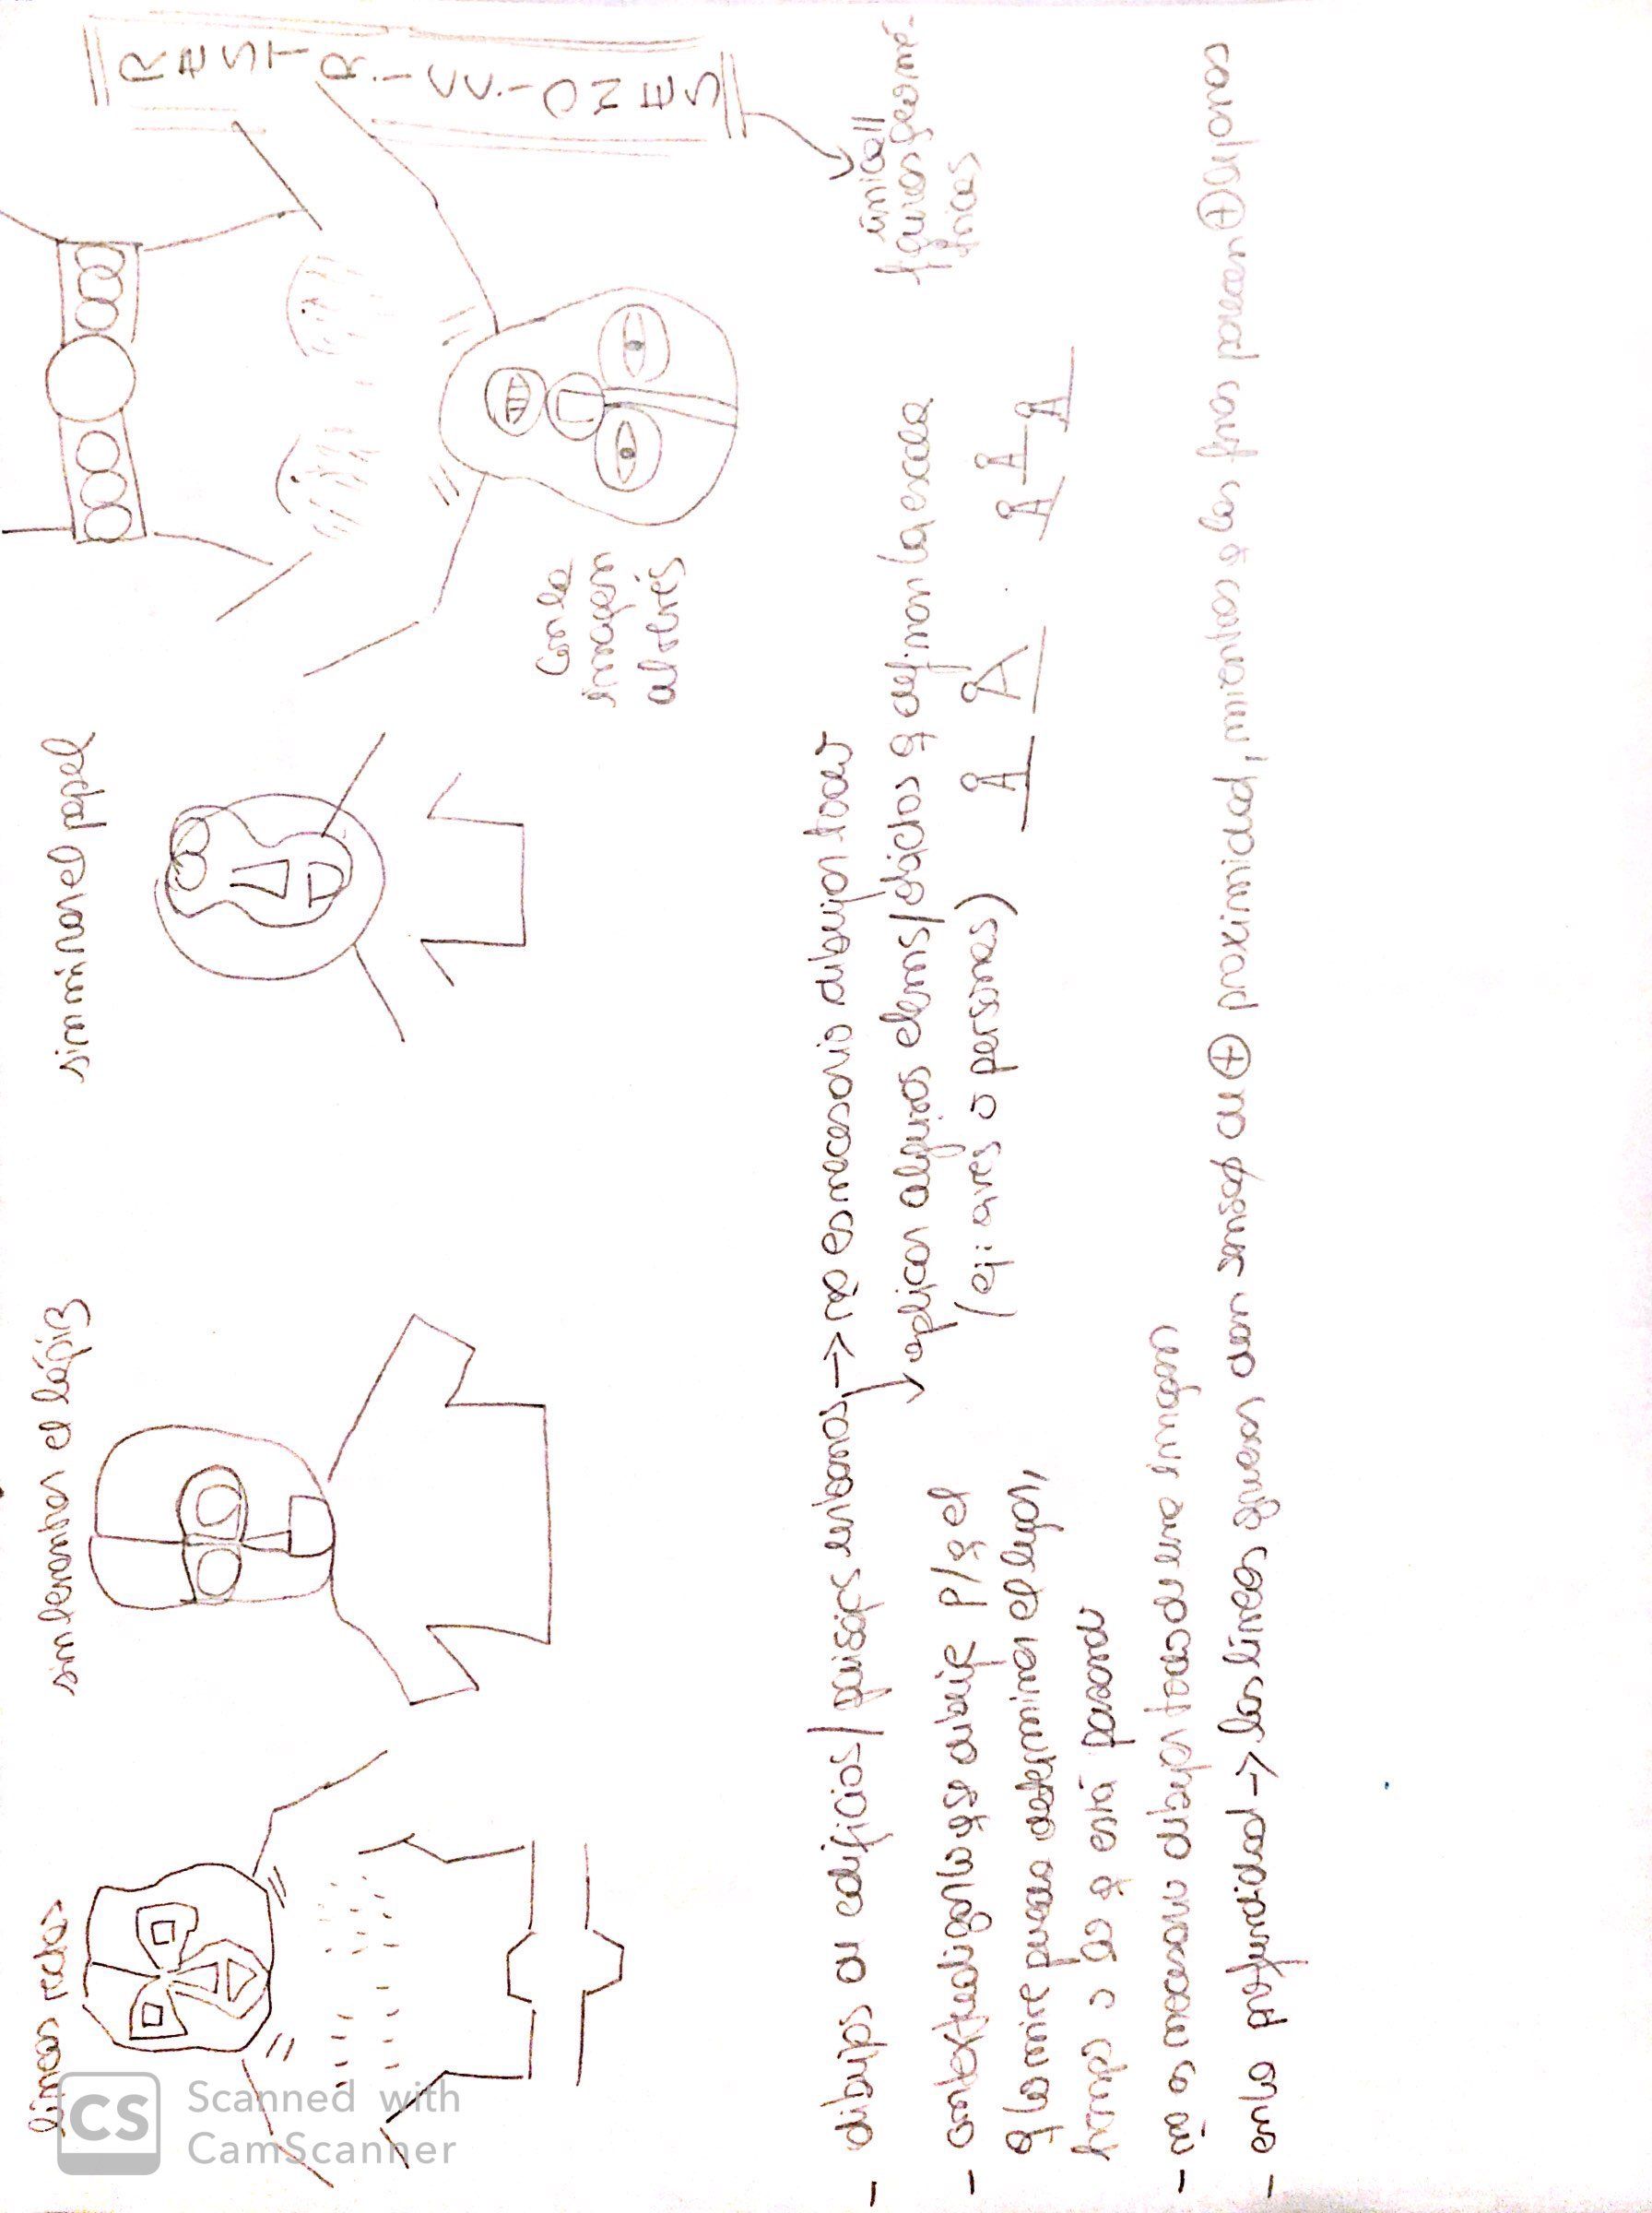 líneas rectas
sin levantar el lápiz
sin mirar el papel
Con la
imagen
al revés
RESTRICCIONES
únicall
figuras geomé-
tricas
- dibujos de edificios/paisajes urbanos → no es necesario dibujar todo
↳ aplicar algunos elems/objetos q definan la escala
(ej: aves o personas)
- contextualizar lo q se dibuje p/ q el
q lo mire pueda determinar el lugar,
tiempo o lo q está pasando
- no es necesario dibujar toda una imagen
- en la profundidad → las líneas gruesas dan sensac de ⊕ proximidad, mientras q las finas parecen ⊕ lejanas
CS Scanned with
CamScanner